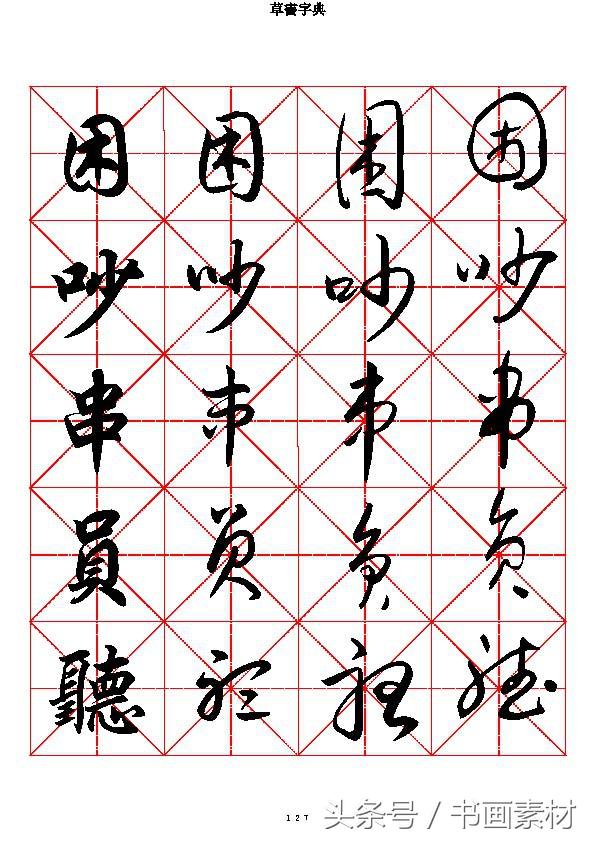 草書字典
困 困 困 困
吵 吵 吵 吵
串 串 串 串
員 員 員 員
聽 聽 聽 聽
127
头条号 / 书画素材